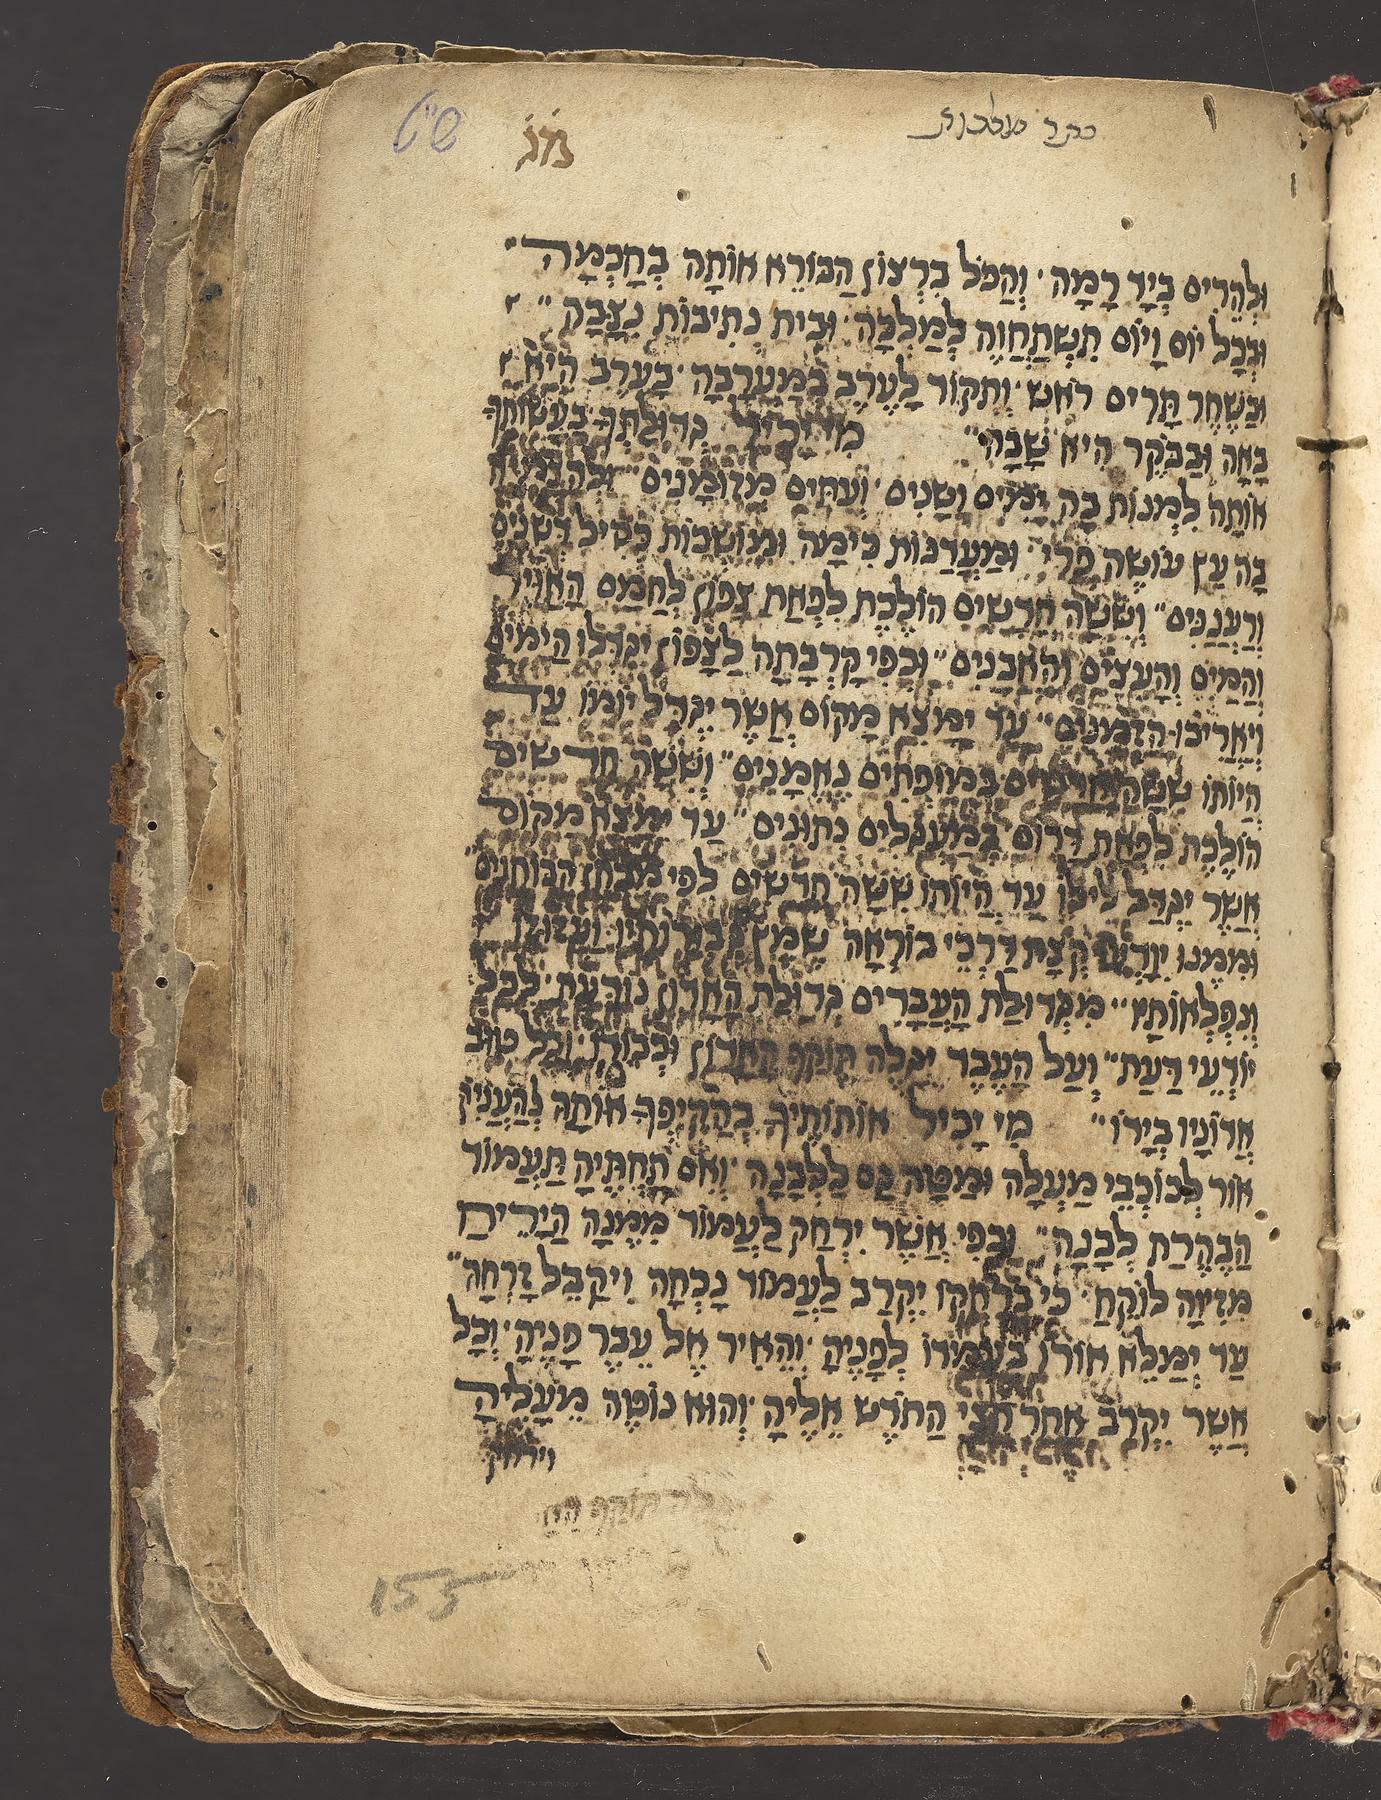 כתר מלכות
וּלְהָרִים בְּיָד רָמָה · וְהַכֹּל בִּרְצוֹן הַבּוֹרֵא אוֹתָהּ בְּחָכְמָה ·
וּבְכָל יוֹם וָיוֹם תִּשְׁתַּחֲוֶה לְמַלְכָּהּ · וּבֵית נְתִיבוֹת נִצָּבָה ״
וּבַשַּׁחַר תָּרִים רֹאשׁ · וְתִקּוֹד לָעֶרֶב בְּמַעֲרָבָהּ · בָּעֶרֶב הִיא
בָאָה וּבַבֹּקֶר הִיא שָׁבָה ״ מִי יָכִיל גְּדוּלָּתְךָ בַּעֲשׂוֹתְךָ
אוֹתָהּ לִמְנוֹת בָּהּ יָמִים וְשָׁנִים · וְעִתִּים מְזוּמָּנִים ״ וּלְהַצְמִיחַ
בָּהּ עֵץ עוֹשֶׂה פְּרִי · וּמַעֲדַנּוֹת כִּימָה וּמוֹשְׁכוֹת כְּסִיל דְּשֵׁנִים
וְרַעֲנַנִּים ״ וְשִׁשָּׁה חֳדָשִׁים הוֹלֶכֶת לִפְאַת צָפוֹן לְחַמֵּם הָאֲוִיר
וְהַמַּיִם וְהָעֵצִים וְהָאֲבָנִים ״ וּכְפִי קָרְבָתָהּ לַצָּפוֹן יִגְדְּלוּ הַיָּמִים
וְיַאֲרִיכוּ הַזְּמַנִּים ״ עַד יִמָּצֵא מָקוֹם אֲשֶׁר יִגְדַּל יוֹמוֹ עַד
הֱיוֹתוֹ שִׁשָּׁה חֳדָשִׁים בְּמוֹפְתִים נֶאֱמָנִים ״ וְשִׁשָּׁה חֳדָשִׁים
הוֹלֶכֶת לִפְאַת דָּרוֹם בְּמַעְגָּלִים נְתוּנִים ״ עַד יִמָּצֵא מָקוֹם
אֲשֶׁר יִגְדַּל לֵילוֹ עַד הֱיוֹתוֹ שִׁשָּׁה חֳדָשִׁים לְפִי מִבְחַן הַבּוֹחֲנִים ״
וּמִמֶּנּוּ יִוָּדְעוּ קְצָת דַּרְכֵי בוֹרְאָהּ שֶׁמֶץ מִגְּבוּרוֹתָיו וַעֱזוּזוֹ
וְנִפְלְאוֹתָיו ״ מִגְּדוּלַּת הָעֲבָדִים גְּדוּלַּת הָאָדוֹן נוֹדַעַת · לְכָל
יוֹדְעֵי דַעַת ״ וְעַל הָעֶבֶד יִגָּלֶה תּוֹקֶף הָאָדוֹן וּכְבוֹדוֹ · וְכָל טוּב
אֲדוֹנָיו בְּיָדוֹ ״ מִי יָכִיל אוֹתוֹתֶיךָ בְּהַקִיפְךָ אוֹתָהּ לְהַעֲנִיק
אוֹר לְכוֹכְבֵי מַעְלָה וּמַטָּה גַּם לַלְּבָנָה · וְאִם תַּחְתֶּיהָ תַּעֲמוֹד
הַבַּהֶרֶת לְבָנָה ״ וּכְפִי אֲשֶׁר יִרְחַק לַעֲמוֹד מִמֶּנָּה הַיָּרֵיחַ
מִזִּיוָהּ לוֹקֵחַ · כִּי בְּרָחֳקוֹ יִקְרַב לַעֲמוֹד נָכְחָהּ וִיקַבֵּל זָרְחָהּ ״
עַד יִמָּלֵא אוֹרוֹ בְּעָמְדוֹ לְפָנֶיהָ · וְהֵאִיר אֶל עֵבֶר פָּנֶיהָ · וְכָל
אֲשֶׁר יִקְרַב אַחַר חֲצִי הַחֹדֶשׁ אֵלֶיהָ · וְהוּא נוֹטֶה מֵעָלֶיהָ
וירחק
153